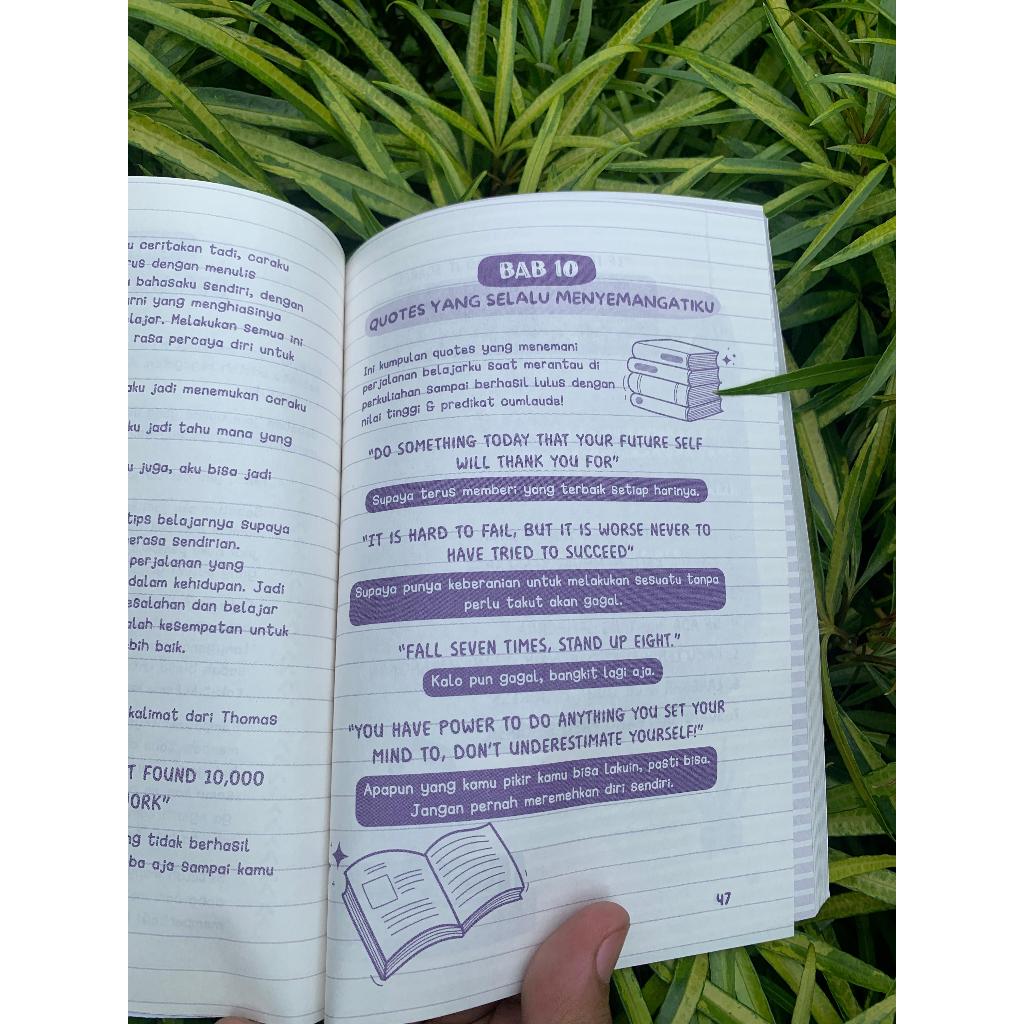 u ceritakan tadi, caraku
rus dengan menulis
bahasaku sendiri, dengan
rni yang menghiasinya
lajar. Melakukan semua ini
rasa percaya diri untuk
aku jadi menemukan caraku
ku jadi tahu mana yang
u juga, aku bisa jadi
tips belajarnya supaya
erasa sendirian.
perjalanan yang
dalam kehidupan. Jadi
esalahan dan belajar
lah kesempatan untuk
bih baik.
kalimat dari Thomas
T FOUND 10,000
ORK"
ng tidak berhasil
ba aja sampai kamu
BAB 10
QUOTES YANG SELALU MENYEMANGATIKU
Ini kumpulan quotes yang menemani
perjalanan belajarku saat merantau di
perkuliahan sampai berhasil lulus dengan
nilai tinggi & predikat cumlaude!
"DO SOMETHING TODAY THAT YOUR FUTURE SELF
WILL THANK YOU FOR"
Supaya terus memberi yang terbaik setiap harinya.
"IT IS HARD TO FAIL, BUT IT IS WORSE NEVER TO
HAVE TRIED TO SUCCEED"
Supaya punya keberanian untuk melakukan sesuatu tanpa
perlu takut akan gagal.
"FALL SEVEN TIMES, STAND UP EIGHT."
Kalo pun gagal, bangkit lagi aja.
"YOU HAVE POWER TO DO ANYTHING YOU SET YOUR
MIND TO, DON'T UNDERESTIMATE YOURSELF!"
Apapun yang kamu pikir kamu bisa lakuin, pasti bisa.
Jangan pernah meremehkan diri sendiri.
47